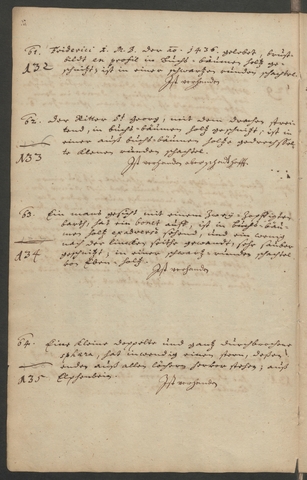 61. Friderici
132
bildt en profil in buchs-bäumen holtz ge-
schnitzt, ist in einer schwartzen runden schachtel.
Ist vorhanden
62. Der Ritter St. Georg, mit dem drachen strei-
tend, in buchs-bäumen holtz geschnitzt, ist in
133
einer auß buchs-bäumen holtze gedrechsel-
ten kleinen runden schachtel.
Ist vorhanden
63. Ein mans gesicht mit einem
barth, hat ein bonet auff, ist in buchs-bäu-
men holtz und ein wenig
134
nach der lincken seithe gewandt, sehr sauber
geschnitzt, in einer schwartz-runden schachtel
von Eben-holtz.
Ist vorhanden
64. Eine kleine doppelte und gantz durchbrochene
sphæra, hat inwendig einen stern, deßen
enden auß allen löchern herfor stehen, auß
135
Elffenbein.
Ist vorhanden